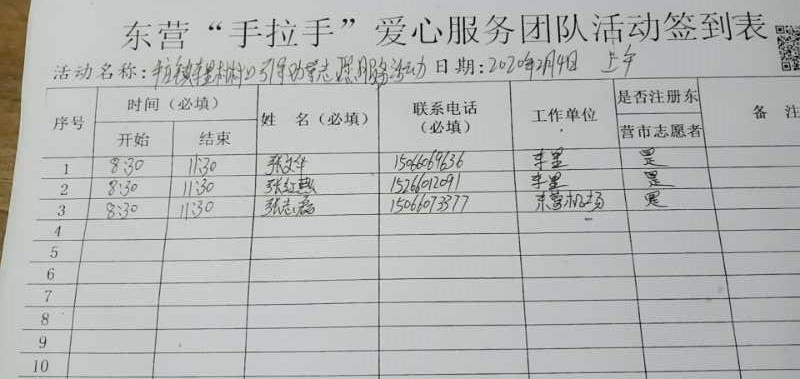 东营“手拉手”爱心服务团队活动签到表
活动名称: 引导 志愿服务活动 日期:2020年2月4日 上午
序号 时间(必填) 姓 名(必填) 联系电话(必填) 工作单位 是否注册东营市志愿者 备 注
开始 结束
1 8:30 11:30 张文华 15066069636 辛里 是
2 8:30 11:30 张红燕 15266012091 辛里 是
3 8:30 11:30 张志磊 15066073377 东营机场 是
4
5
6
7
8
9
10